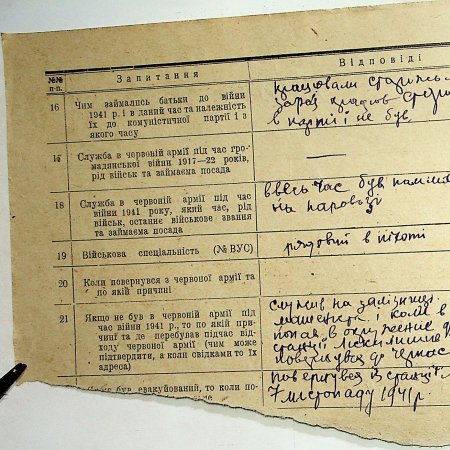 №№ п-п.
Запитання
Відповіді
16
Чим займались батьки до війни
1941 р. і в даний час та належність
їх до комуністичної партії і з
якого часу
працювали
зараз
в партії не був
17
Служба в червоній армії під час гро-
мадянської війни 1917—22 років,
рід військ та займаєма посада
—
18
Служба в червоній армії під час
війни 1941 року, який час, рід
військ, останнє військове звання
та займаєма посада
ввесь час був
на паровозі
19
Військова спеціальність (№ ВУС)
рядовий в піхоті
20
Коли повернувся з червоної армії та
по якій причині
21
Якщо не був в червоній армії під
час війни 1941 р., то по якій при-
чині та де перебував підчас від-
ходу червоної армії (чим може
підтвердити, а коли свідками то їх
адреса)
служив на залізниці
і коли в
попав в окружение
станції
до
був евакуйований, то коли по-
повернувся із станції
7 листопаду 1941 р.